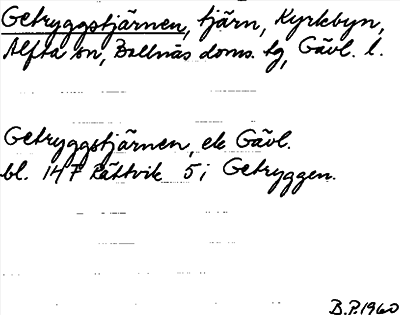 Getryggstjärnen, tjärn, Kyrkbyn,
Alfta sn, Bollnäs doms. tg, Gävl. l.
Getryggstjärnen, ek Gävl.
bl. 14F Rättvik 5i Getryggen.
B.P. 1960